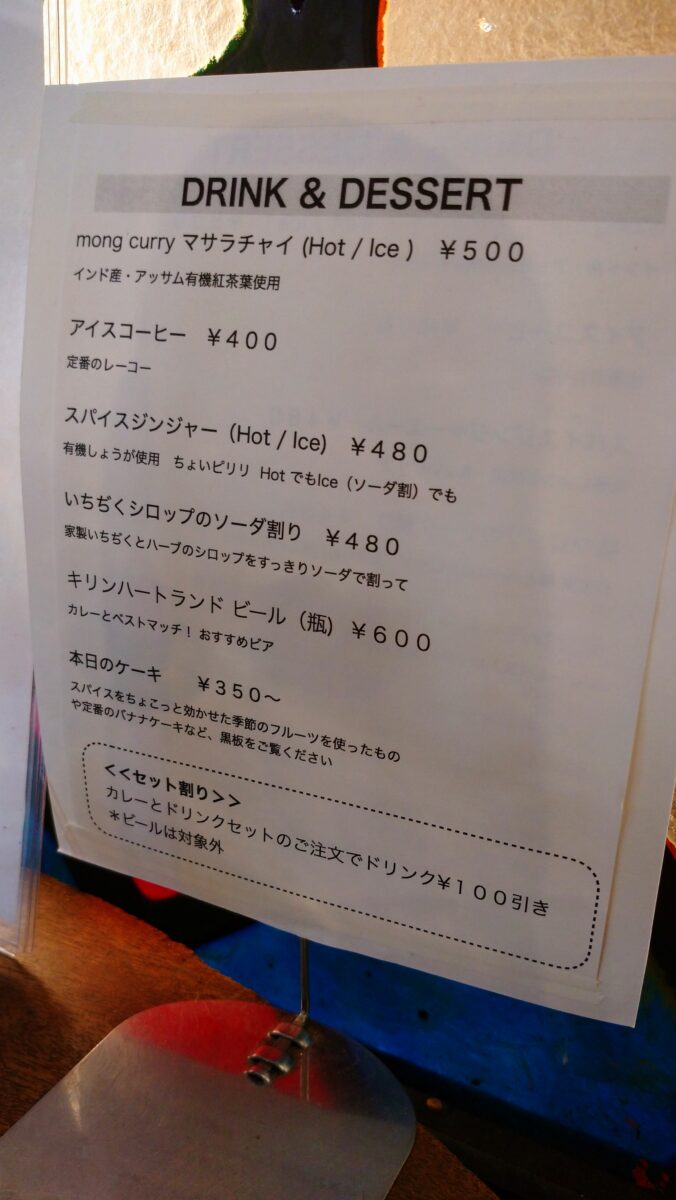 DRINK & DESSERT
mong curry マサラチャイ (Hot / Ice ) ¥500
インド産・アッサム有機紅茶葉使用
アイスコーヒー ¥400
定番のレーコー
スパイスジンジャー (Hot / Ice) ¥480
有機しょうが使用 ちょいピリリ Hot でもIce（ソーダ割）でも
いちぢくシロップのソーダ割り ¥480
家製いちぢくとハーブのシロップをすっきりソーダで割って
キリンハートランド ビール（瓶) ¥600
カレーとベストマッチ！おすすめビア
本日のケーキ ¥350〜
スパイスをちょこっと効かせた季節のフルーツを使ったもの
や定番のバナナケーキなど、黒板をご覧ください
<<セット割り>>
カレーとドリンクセットのご注文でドリンク¥100引き
＊ビールは対象外